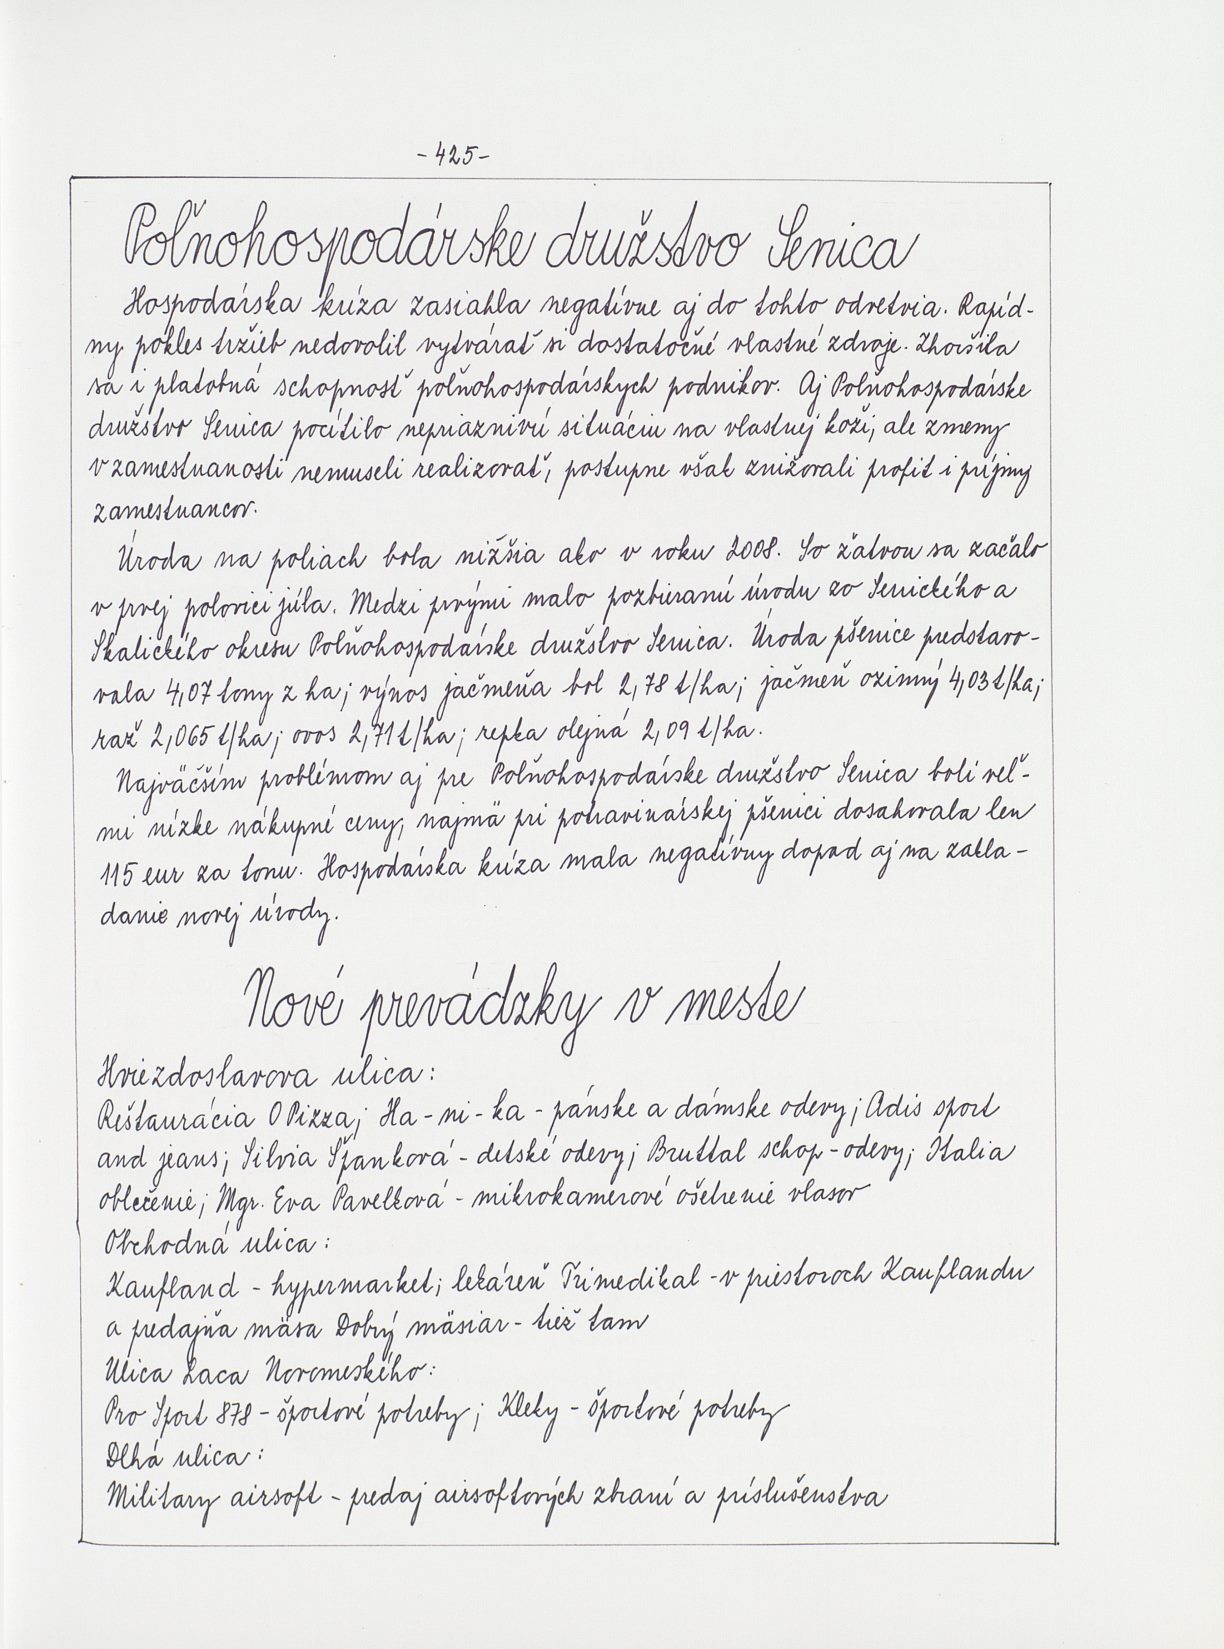 -425-
Poľnohospodárske družstvo Senica
Hospodárska kríza zasiahla negatívne aj do tohto odvetvia. Rapíd-
ny pokles tržieb nedovolil vytvárať si dostatočné vlastné zdroje. Zhoršila
sa i platobná schopnosť poľnohospodárskych podnikov. Aj Poľnohospodárske
družstvo Senica pocítilo nepriaznivú situáciu na vlastnej koži, ale zmeny
v zamestnanosti nemuseli realizovať, postupne však znižovali profit i príjmy
zamestnancov.
Úroda na poliach bola nižšia ako v roku 2008. So žatvou sa začalo
v prvej polovici júla. Medzi prvými malo pozbieranú úrodu zo Senického a
Skalického okresu Poľnohospodárske družstvo Senica. Úroda pšenice predstavo-
vala 4,07 tony z ha; výnos jačmeňa bol 2,78 t/ha; jačmeň ozimný 4,03 t/ha;
raž 2,065 t/ha; ovos 2,71 t/ha; repka olejná 2,09 t/ha.
Najväčším problémom aj pre Poľnohospodárske družstvo Senica boli veľ-
mi nízke nákupné ceny, najmä pri potravinárskej pšenici dosahovala len
115 eur za tonu. Hospodárska kríza mala negatívny dopad aj na zakla-
danie novej úrody.
Nové prevádzky v meste
Hviezdoslavova ulica:
Reštaurácia O Pizza; Ha-ni-ka - pánske a dámske odevy; Adis sport
and jeans; Silvia Španková - detské odevy; Bruttal schop - odevy; Italia
oblečenie; Mgr. Eva Pavelková - mikrokamerové ošetrenie vlasov
Obchodná ulica:
Kaufland - hypermarket; lekáreň Trimedikal - v priestoroch Kauflandu
a predajňa mäsa Dobrý mäsiar - tiež tam
Ulica Laca Novomeského:
Pro Sport 878 - športové potreby; Kleky - športové potreby
Dlhá ulica:
Military airsoft - predaj airsoftových zbraní a príslušenstva